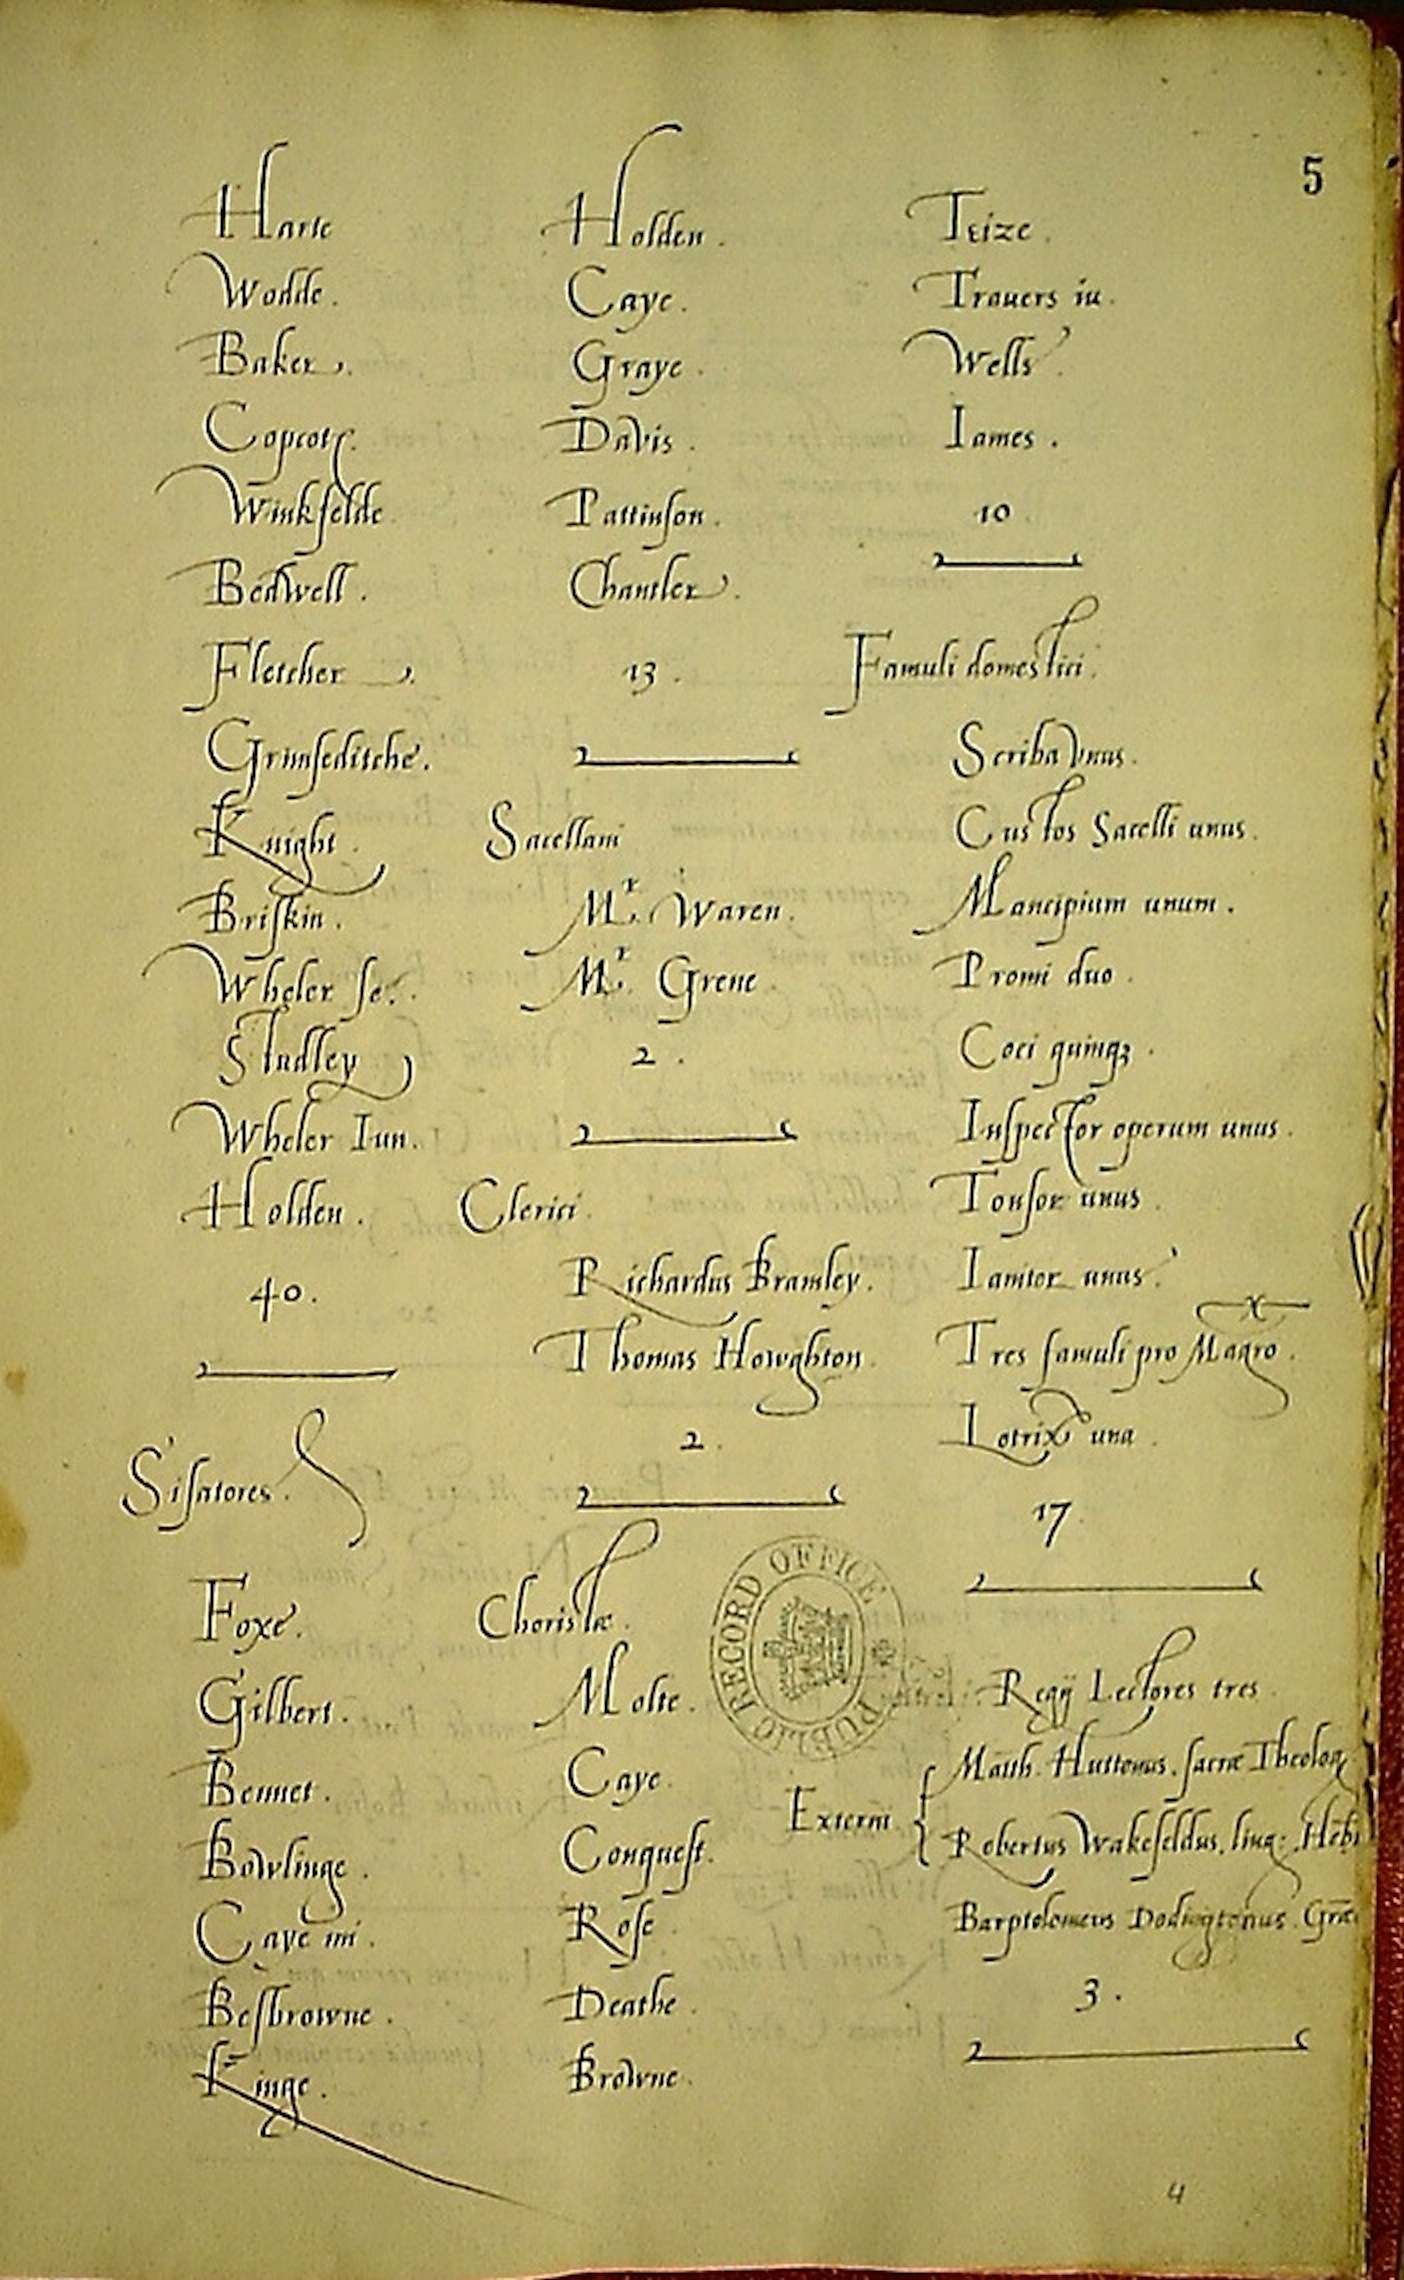 5
Harte
Wodde.
Baker.
Copcot
Winkfelde
Bedwell.
Fletcher.
Grimseditche.
Knight.
Briskin.
Wheler se.
Studley
Wheler Iun.
Holden.
40.
Sisatores.
Foxe.
Gilbert.
Bennet.
Bowlinge.
Caye mi.
Besbrowne.
Kinge.
Holden.
Caye.
Graye.
Davis.
Pattinson.
Chantler.
13.
Sacellani
Mr. Waren.
Mr. Grene.
2.
Clerici.
Richardus Bramley.
Thomas Howghton.
2.
Choristæ.
Molte.
Caye.
Conquest.
Rose.
Deathe.
Browne.
Teize.
Trauers iu.
Wells.
Iames.
10.
Famuli domestici.
Scriba vnus.
Custos Sacelli unus.
Mancipium unum.
Promi duo.
Coci quinq3.
Inspector operum unus.
Tonsor unus.
Ianitor unus.
Tres famuli pro Magro.
Lotrix una.
17.
Regij Lectores tres.
Externi
Matth. Huttonus. sacræ Theolog
Robertus Wakefeldus. ling: Heb
Bartolomeus Dodingtonus. Græ
3.
PUBLIC RECORD OFFICE
4